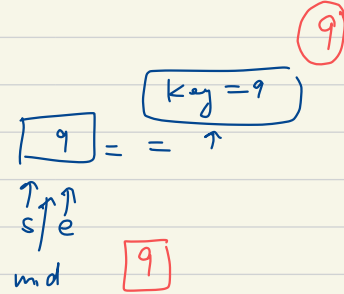 9
key = 9
9 = = ↑
↑ ↑ ↑
s / e
mid
9